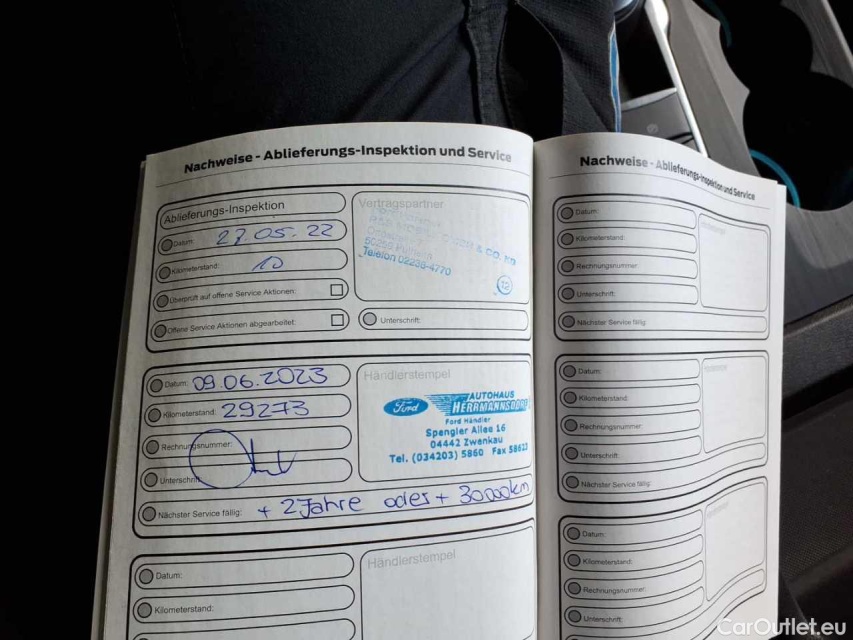 Nachweise - Ablieferungs-Inspektion und Service
Ablieferungs-Inspektion
Datum: 27.05.22
Kilometerstand: 10
Überprüft auf offene Service Aktionen:
Offene Service Aktionen abgearbeitet:
Vertragspartner
& CO. KG
50259 Pulheim
Telefon 02238-4770
Unterschrift:
Datum: 09.06.2023
Kilometerstand: 29273
Rechnungsnummer:
Unterschrift:
Nächster Service fällig: + 2 Jahre oder + 30000km
Händlerstempel
Ford AUTOHAUS
HERRMANNSDORF
Ford Händler
Spengler Allee 16
04442 Zwenkau
Tel. (034203) 5860 Fax 58623
Datum:
Kilometerstand:
Händlerstempel
Nachweise - Ablieferungs-Inspektion und Service
Datum:
Kilometerstand:
Rechnungsnummer:
Unterschrift:
Nächster Service fällig:
Datum:
Kilometerstand:
Rechnungsnummer:
Unterschrift:
Nächster Service fällig:
Datum:
Kilometerstand:
Rechnungsnummer:
Unterschrift:
CarOutlet.eu